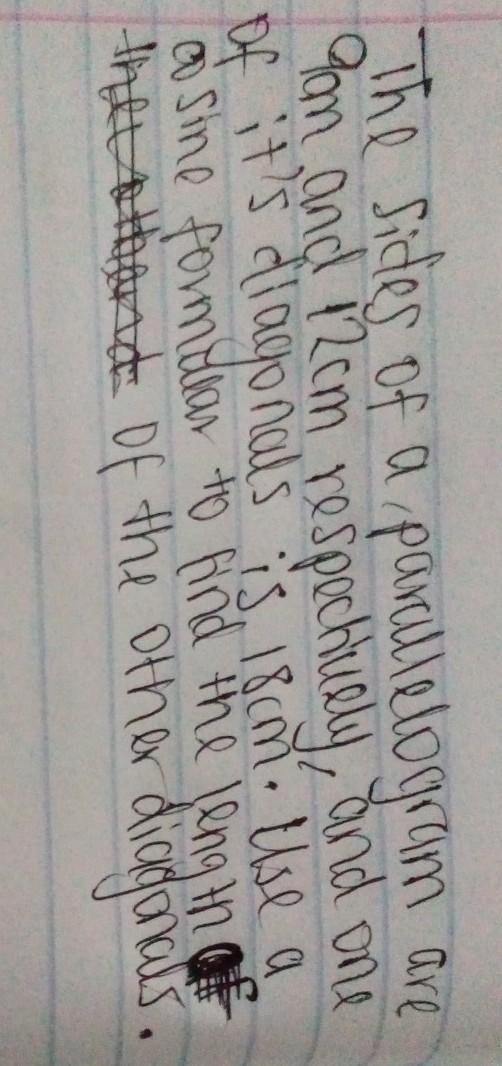 The sides of a parallelogram are
9cm and 12cm respectively, and one
of it's diagonals is 18cm. Use a
cosine formular to find the length
of the other diagonals.